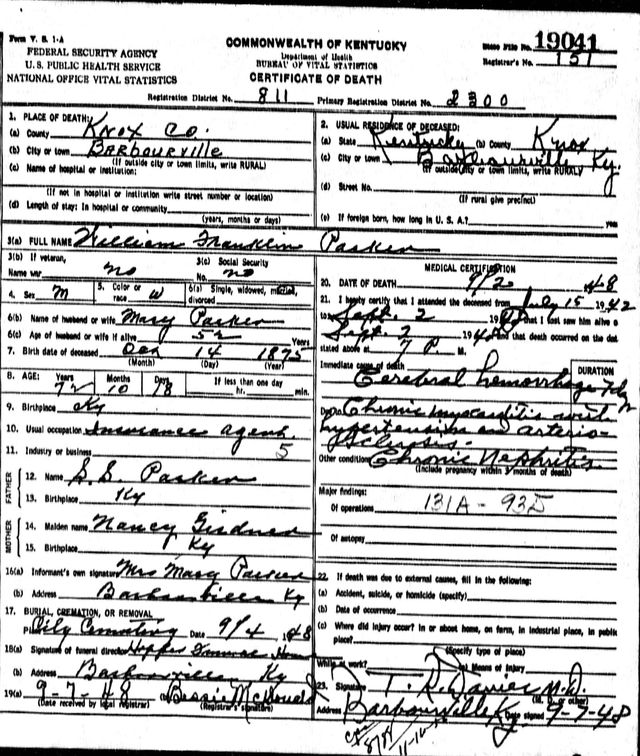 Form V. S. 1-A
FEDERAL SECURITY AGENCY
U. S. PUBLIC HEALTH SERVICE
NATIONAL OFFICE VITAL STATISTICS
COMMONWEALTH OF KENTUCKY
Department of Health
BUREAU OF VITAL STATISTICS
CERTIFICATE OF DEATH
State File No. 19041
Registrar's No. 151
Registration District No. 811 Primary Registration District No. 2300
1. PLACE OF DEATH:
(a) County Knox Co.
(b) City or town Barbourville
(If outside city or town limits, write RURAL)
(c) Name of hospital or institution:
(If not in hospital or institution write street number or location)
(d) Length of stay: In hospital or community
(years, months or days)
2. USUAL RESIDENCE OF DECEASED:
(a) State Kentucky (b) County Knox
(c) City or town Barbourville Ky.
(If outside city or town limits, write RURAL)
(d) Street No.
(If rural give precinct)
(e) If foreign born, how long in U. S. A.? years
3(a) FULL NAME William Franklin Parker
3(b) If veteran,
Name war no
3(c) Social Security
No. no
4. Sex M 5. Color or race W 6(a) Single, widowed, married, divorced
6(b) Name of husband or wife Mary Parker
6(c) Age of husband or wife if alive 52 Years
7. Birth date of deceased Oct 14 1875
(Month) (Day) (Year)
8. AGE: Years 72 Months 10 Days 18 If less than one day hr. min.
9. Birthplace Ky
10. Usual occupation Insurance agent
11. Industry or business 5
FATHER
12. Name S. S. Parker
13. Birthplace Ky
MOTHER
14. Maiden name Nancy
15. Birthplace Ky
16(a) Informant's own signature Mrs Mary Parker
(b) Address Barbourville Ky
17. BURIAL, CREMATION, OR REMOVAL
Place City Cemetery Date 9/4 1948
18(a) Signature of funeral director Hopper Funeral Home
(b) Address Barbourville Ky
19(a) 9-7-48 Bessie
(Date received by local registrar) (Registrar's signature)
MEDICAL CERTIFICATION
20. DATE OF DEATH 9/2 1948
21. I hereby certify that I attended the deceased from July 15 1942
to Sept. 2 1948 that I last saw him alive on
Sept. 2 1948 and that death occurred on the date
stated above at 7 P. M.
Immediate cause of death DURATION
Cerebral hemorrhage
Due to Chronic myocarditis with
hypertension an arterio-
sclerosis.
Other conditions Chronic Nephritis
(Include pregnancy within 3 months of death)
Major findings:
Of operations 131A - 93D
Of autopsy
22. If death was due to external causes, fill in the following:
(a) Accident, suicide, or homicide (specify)
(b) Date of occurrence
(c) Where did injury occur? In or about home, on farm, in industrial place, in public place?
(Specify type of place)
While at work? (e) Means of injury
23. Signature T. R. Davies M.D.
(M. D. or other)
Address Barbourville Ky. Date signed 9-7-48